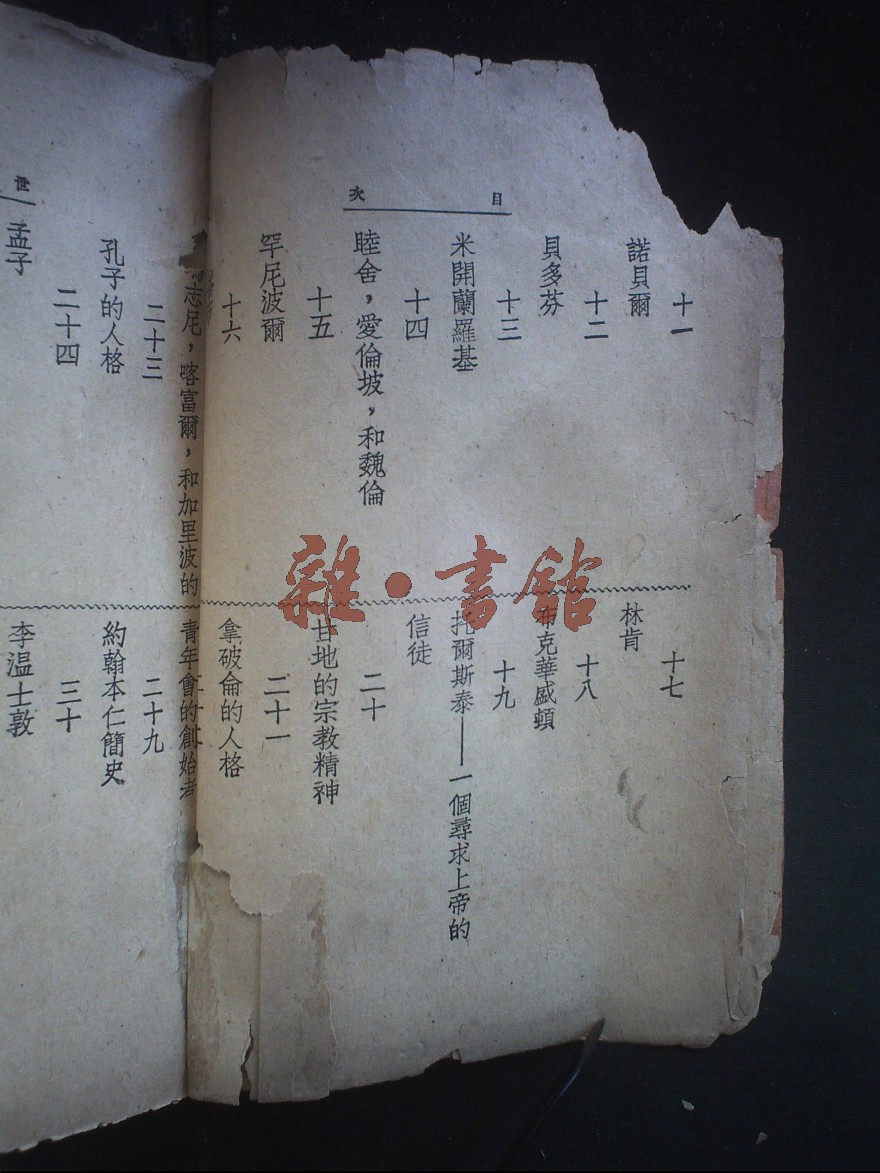 目次
十一
諾貝爾
十二
貝多芬
十三
米開蘭羅基
十四
睦舍，愛倫坡，和魏倫
十五
罕尼波爾
十六
志尼，喀富爾，和加里波的
十七
林肯
十八
布克華盛頓
十九
托爾斯泰——一個尋求上帝的
信徒
二十
甘地的宗教精神
二十一
拿破侖的人格
青年會的創始者
世
二十三
孔子的人格
二十四
孟子
二十九
約翰本仁簡史
三十
李溫士敦
雜·書館